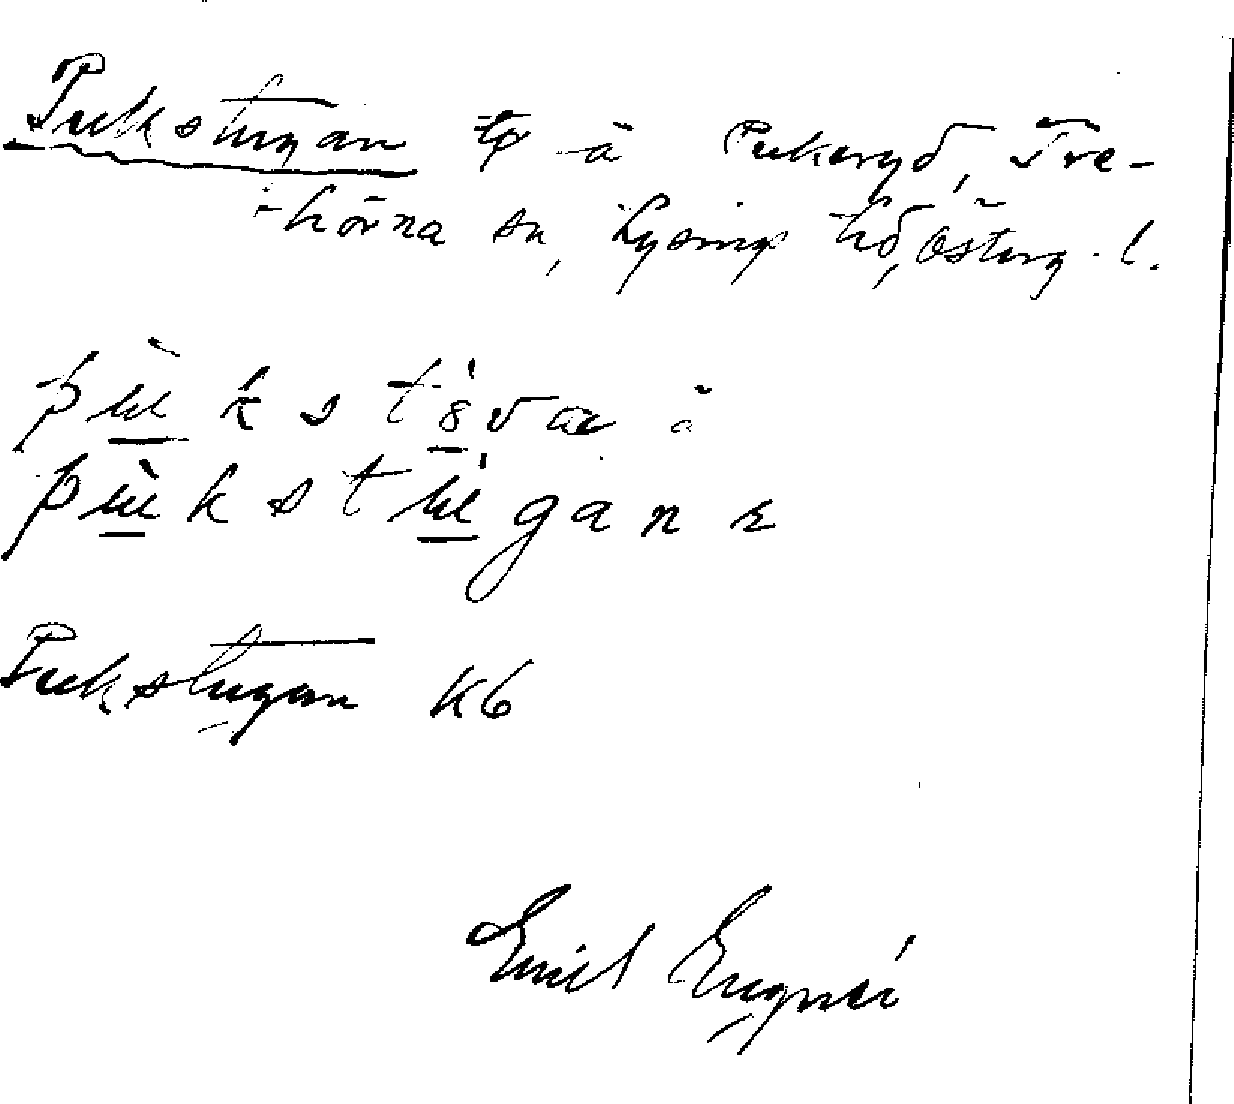 Pukstugan tp å Pukeryd, Tre-
hörna sn, Kysing hd, Österg. l.
pùkstóva å
pùkstúganɛ
Pukstugan Kb
Emil